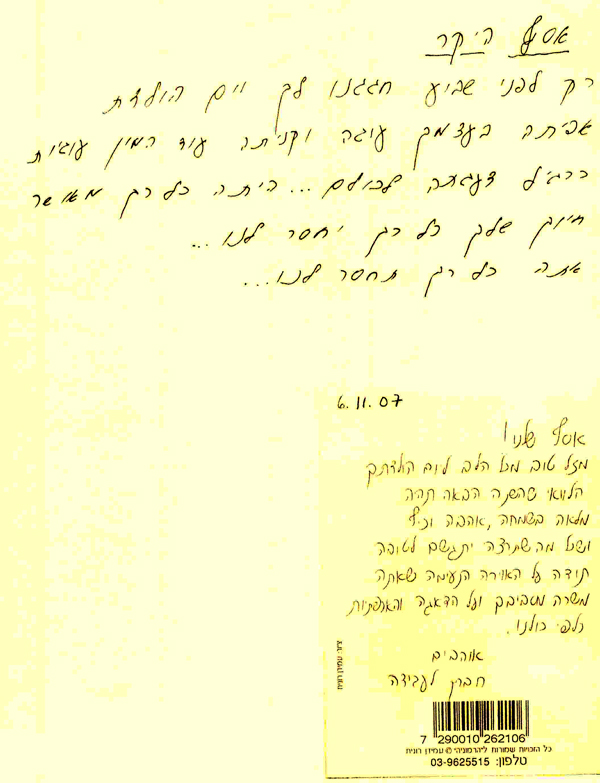 אסף היקר
רק לפני שבוע חגגנו לך יום הולדת
אפיתה בעצמך עוגה וקניתה עוד המון עוגיות
כרגיל דאגתה לכולם... היתה כל כך מאושר
חיוך שלך כל כך יחסר לנו...
אתה כל כך תחסר לנו...
6.11.07
אסף שלנו!
מזל טוב מכל הלב ליום הולדתך
הלוואי שהשנה הבאה תהיה
מלאה בשמחה, אהבה וכיף
ושכל מה שתרצה יתגשם לטובה
תודה על האוירה הנעימה שאתה
משרה מסביבך ועל הדאגה והאכפתיות
כלפי כולנו.
אוהבים
חברך לעבודה
7 290010 262106
כל הזכויות שמורות ל"הרמוניה" © עמידן רונית
טלפון: 03-9625515